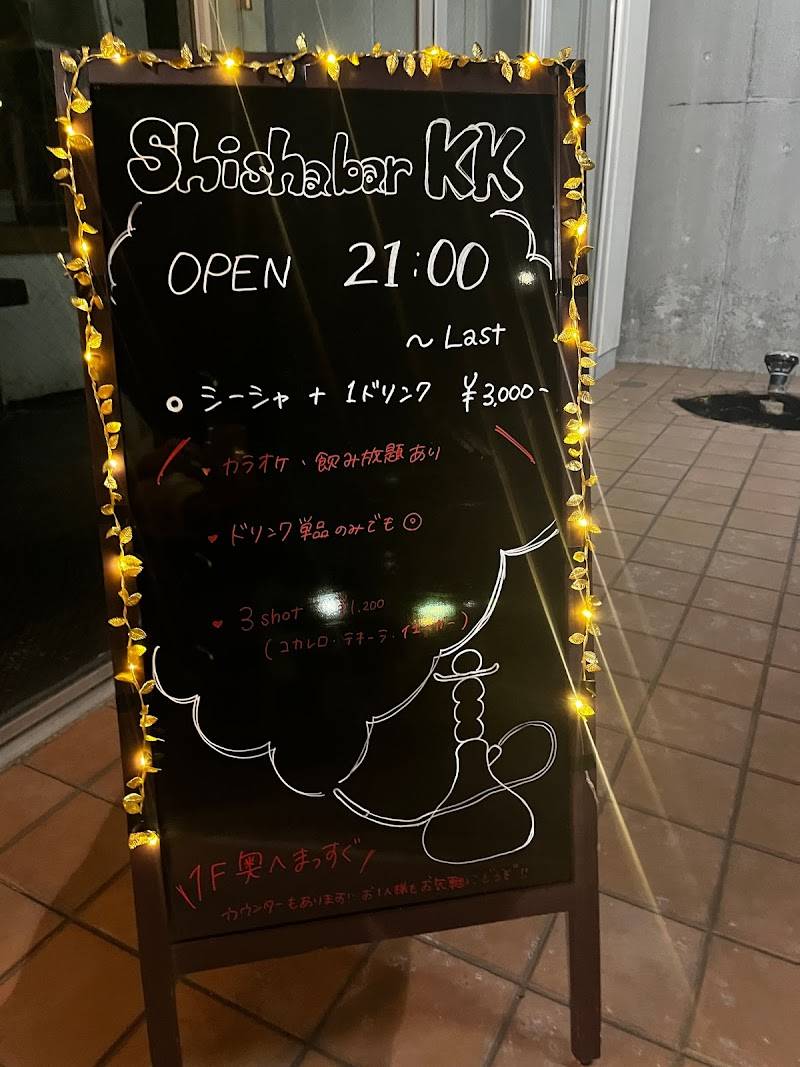 Shishabar KK
OPEN 21:00
~ Last
シーシャ + 1ドリンク ¥3,000~
カラオケ、飲み放題あり
ドリンク単品のみでも◎
3 shot ¥1,200
(コカレロ・テキーラ・イェーガー)
\1F 奥へまっすぐ/
カウンターもあります! お1人様もお気軽にどうぞ!!